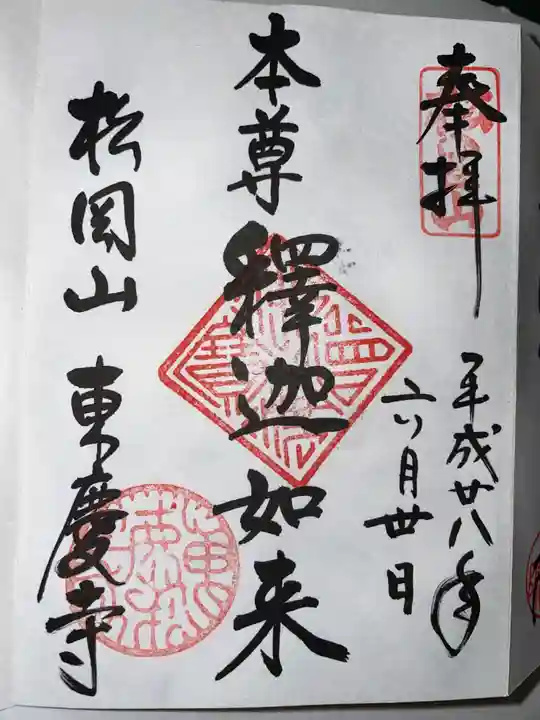 奉拝
平成廿八年
六月廿日
本尊釋迦如来
松岡山 東慶寺